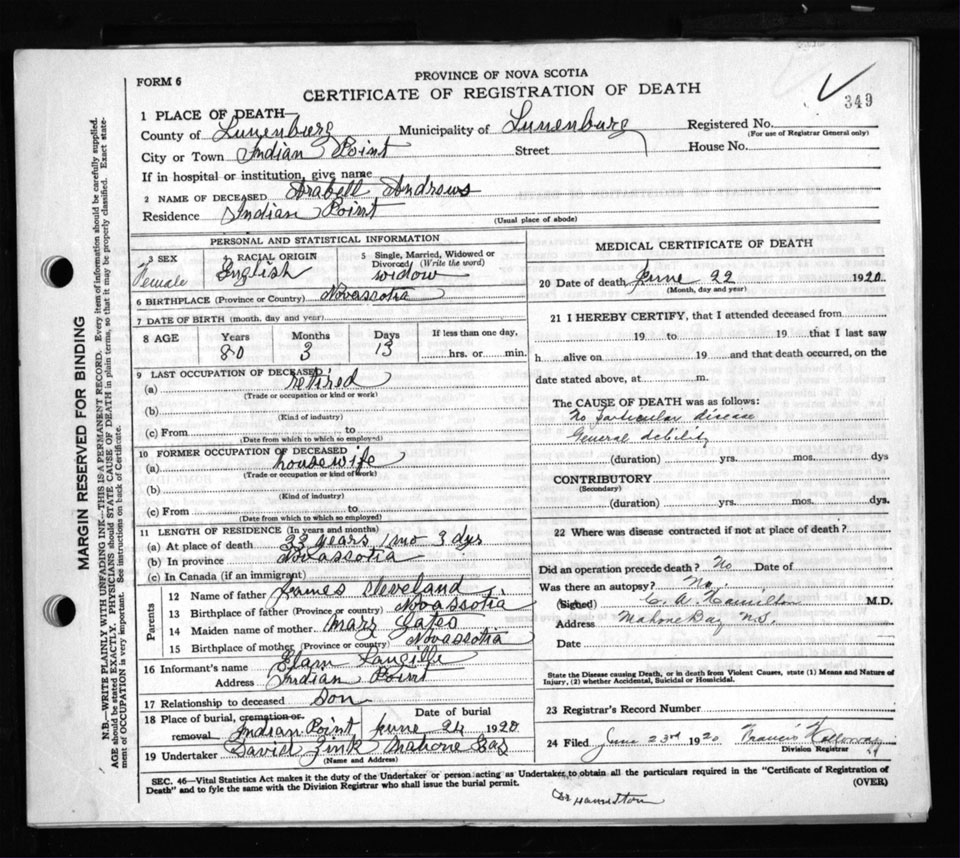 PROVINCE OF NOVA SCOTIA
FORM 6
CERTIFICATE OF REGISTRATION OF DEATH
349
1 PLACE OF DEATH—
County of Lunenburg Municipality of Lunenburg Registered No.
(For use of Registrar General only)
City or Town Indian Point Street House No.
If in hospital or institution, give name
2 NAME OF DECEASED Arabell Andrews
Residence Indian Point
(Usual place of abode)
PERSONAL AND STATISTICAL INFORMATION
3 SEX Female
4 RACIAL ORIGIN English
5 Single, Married, Widowed or Divorced (Write the word) widow
6 BIRTHPLACE (Province or Country) Novascotia
7 DATE OF BIRTH (month, day and year)
8 AGE Years Months Days If less than one day,
80 3 13 hrs. or min.
9 LAST OCCUPATION OF DECEASED
(a) retired
(Trade or occupation or kind or work)
(b)
(Kind of industry)
(c) From to
(Date from which to which so employed)
10 FORMER OCCUPATION OF DECEASED
(a) housewife
(Trade or occupation or kind of work)
(b)
(Kind of industry)
(c) From to
(Date from which to which so employed)
11 LENGTH OF RESIDENCE (In years and months)
(a) At place of death 33 years 1 mo 3 dys
(b) In province Novascotia
(c) In Canada (if an immigrant)
Parents
12 Name of father James Cleveland
13 Birthplace of father (Province or country) Novascotia
14 Maiden name of mother Mary
15 Birthplace of mother (Province or country) Novascotia
16 Informant's name Elam Langille
Address Indian Point
17 Relationship to deceased Son
18 Place of burial, cremation or removal Indian Point Date of burial June 24 1920
19 Undertaker David Zink Mahone Bay
(Name and Address)
MEDICAL CERTIFICATE OF DEATH
20 Date of death June 22 1920
(Month, day and year)
21 I HEREBY CERTIFY, that I attended deceased from
19 to 19 that I last saw
h alive on 19 and that death occurred, on the
date stated above, at m.
The CAUSE OF DEATH was as follows:
No particular disease
General debility
(duration) yrs. mos. dys
CONTRIBUTORY
(Secondary)
(duration) yrs. mos. dys.
22 Where was disease contracted if not at place of death?
Did an operation precede death? No Date of
Was there an autopsy? No.
(Signed) C. A. Hamilton M.D.
Address Mahone Bay N.S.
Date
State the Disease causing Death, or in death from Violent Causes, state (1) Means and Nature of
Injury, (2) whether Accidental, Suicidal or Homicidal.
23 Registrar's Record Number
24 Filed June 23rd 1920 Francis
Division Registrar
SEC. 46—Vital Statistics Act makes it the duty of the Undertaker or person acting as Undertaker to obtain all the particulars required in the "Certificate of Registration of
Death" and to fyle the same with the Division Registrar who shall issue the burial permit.
(OVER)
Dr Hamilton
MARGIN RESERVED FOR BINDING
N.B.—WRITE PLAINLY WITH UNFADING INK—THIS IS A PERMANENT RECORD. Every item of information should be carefully supplied.
AGE should be stated EXACTLY. PHYSICIANS should STATE CAUSE OF DEATH in plain terms, so that it may be properly classified. Exact state-
ment of OCCUPATION is very important. See instructions on back of Certificate.